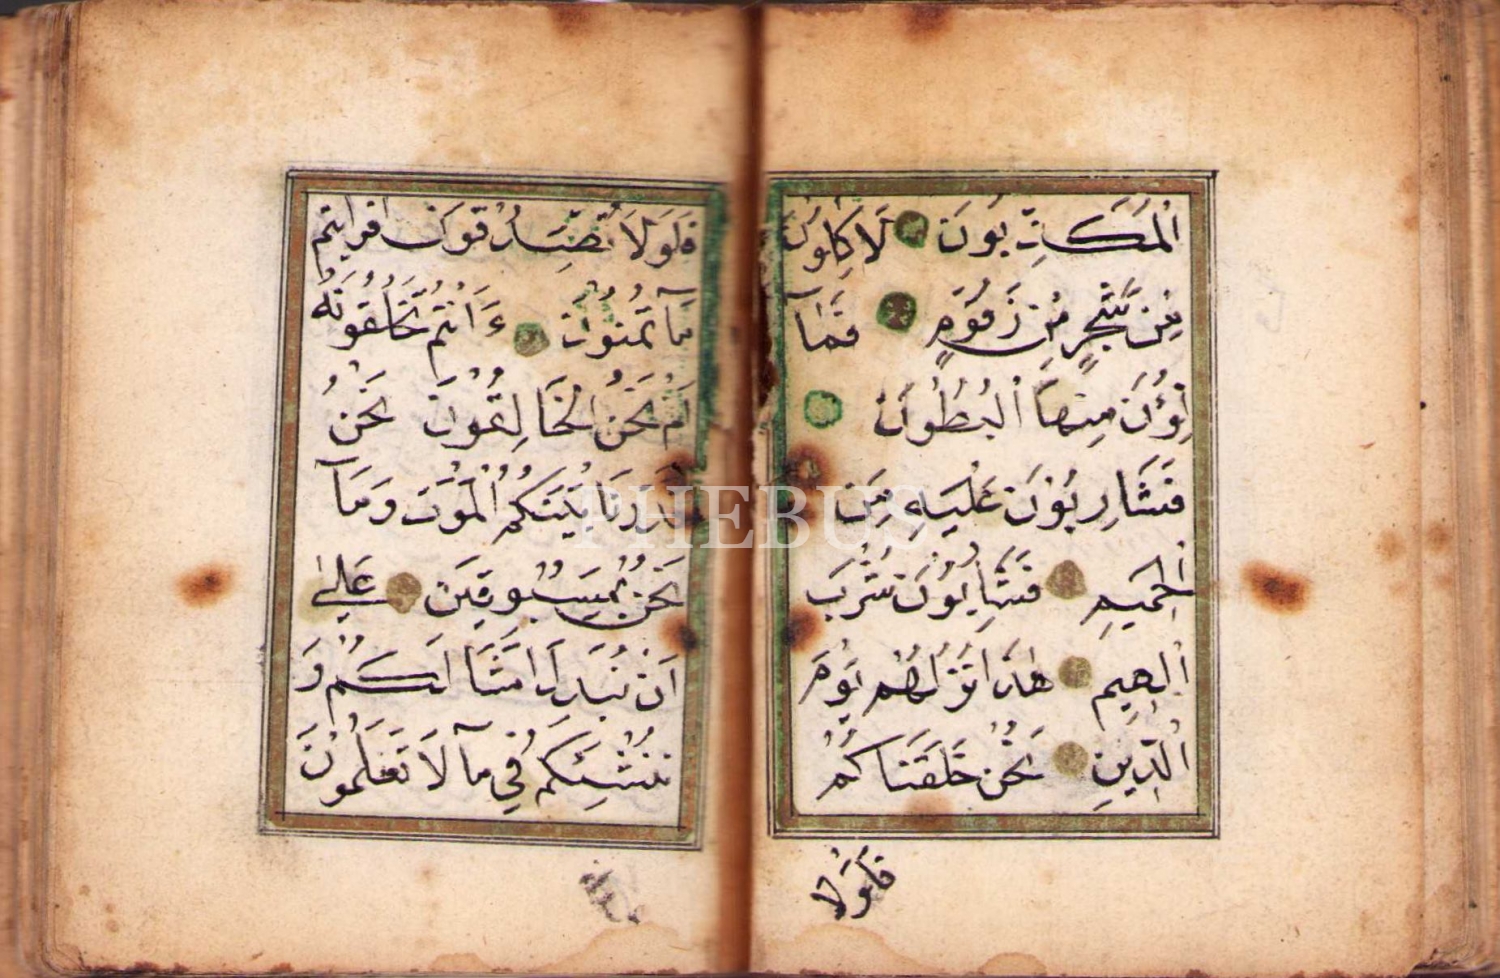 الْمُكَذِّبُونَ لَآكِلُونَ
مِنْ شَجَرٍ مِنْ زَقُّومٍ فَمَا
لِؤُنَ مِنْهَا الْبُطُونَ
فَشَارِبُونَ عَلَيْهِ مِنَ
الْحَمِيمِ فَشَارِبُونَ شُرْبَ
الْهِيمِ هٰذَا نُزُلُهُمْ يَوْمَ
الدِّينِ نَحْنُ خَلَقْنَاكُمْ
فَلَوْلَا
فَلَوْلَا تُصَدِّقُونَ افَرَايْتُمْ
مَا تُمْنُونَ ءَاَنْتُمْ تَخْلُقُونَهُ
اَمْ نَحْنُ الْخَالِقُونَ نَحْنُ
قَدَّرْنَا بَيْنَكُمُ الْمَوْتَ وَمَا
نَحْنُ بِمَسْبُوقِينَ عَلٰى
اَنْ نُبَدِّلَ اَمْثَالَكُمْ وَ
نُنْشِئَكُمْ فِي مَا لَا تَعْلَمُونَ
PHEBUS